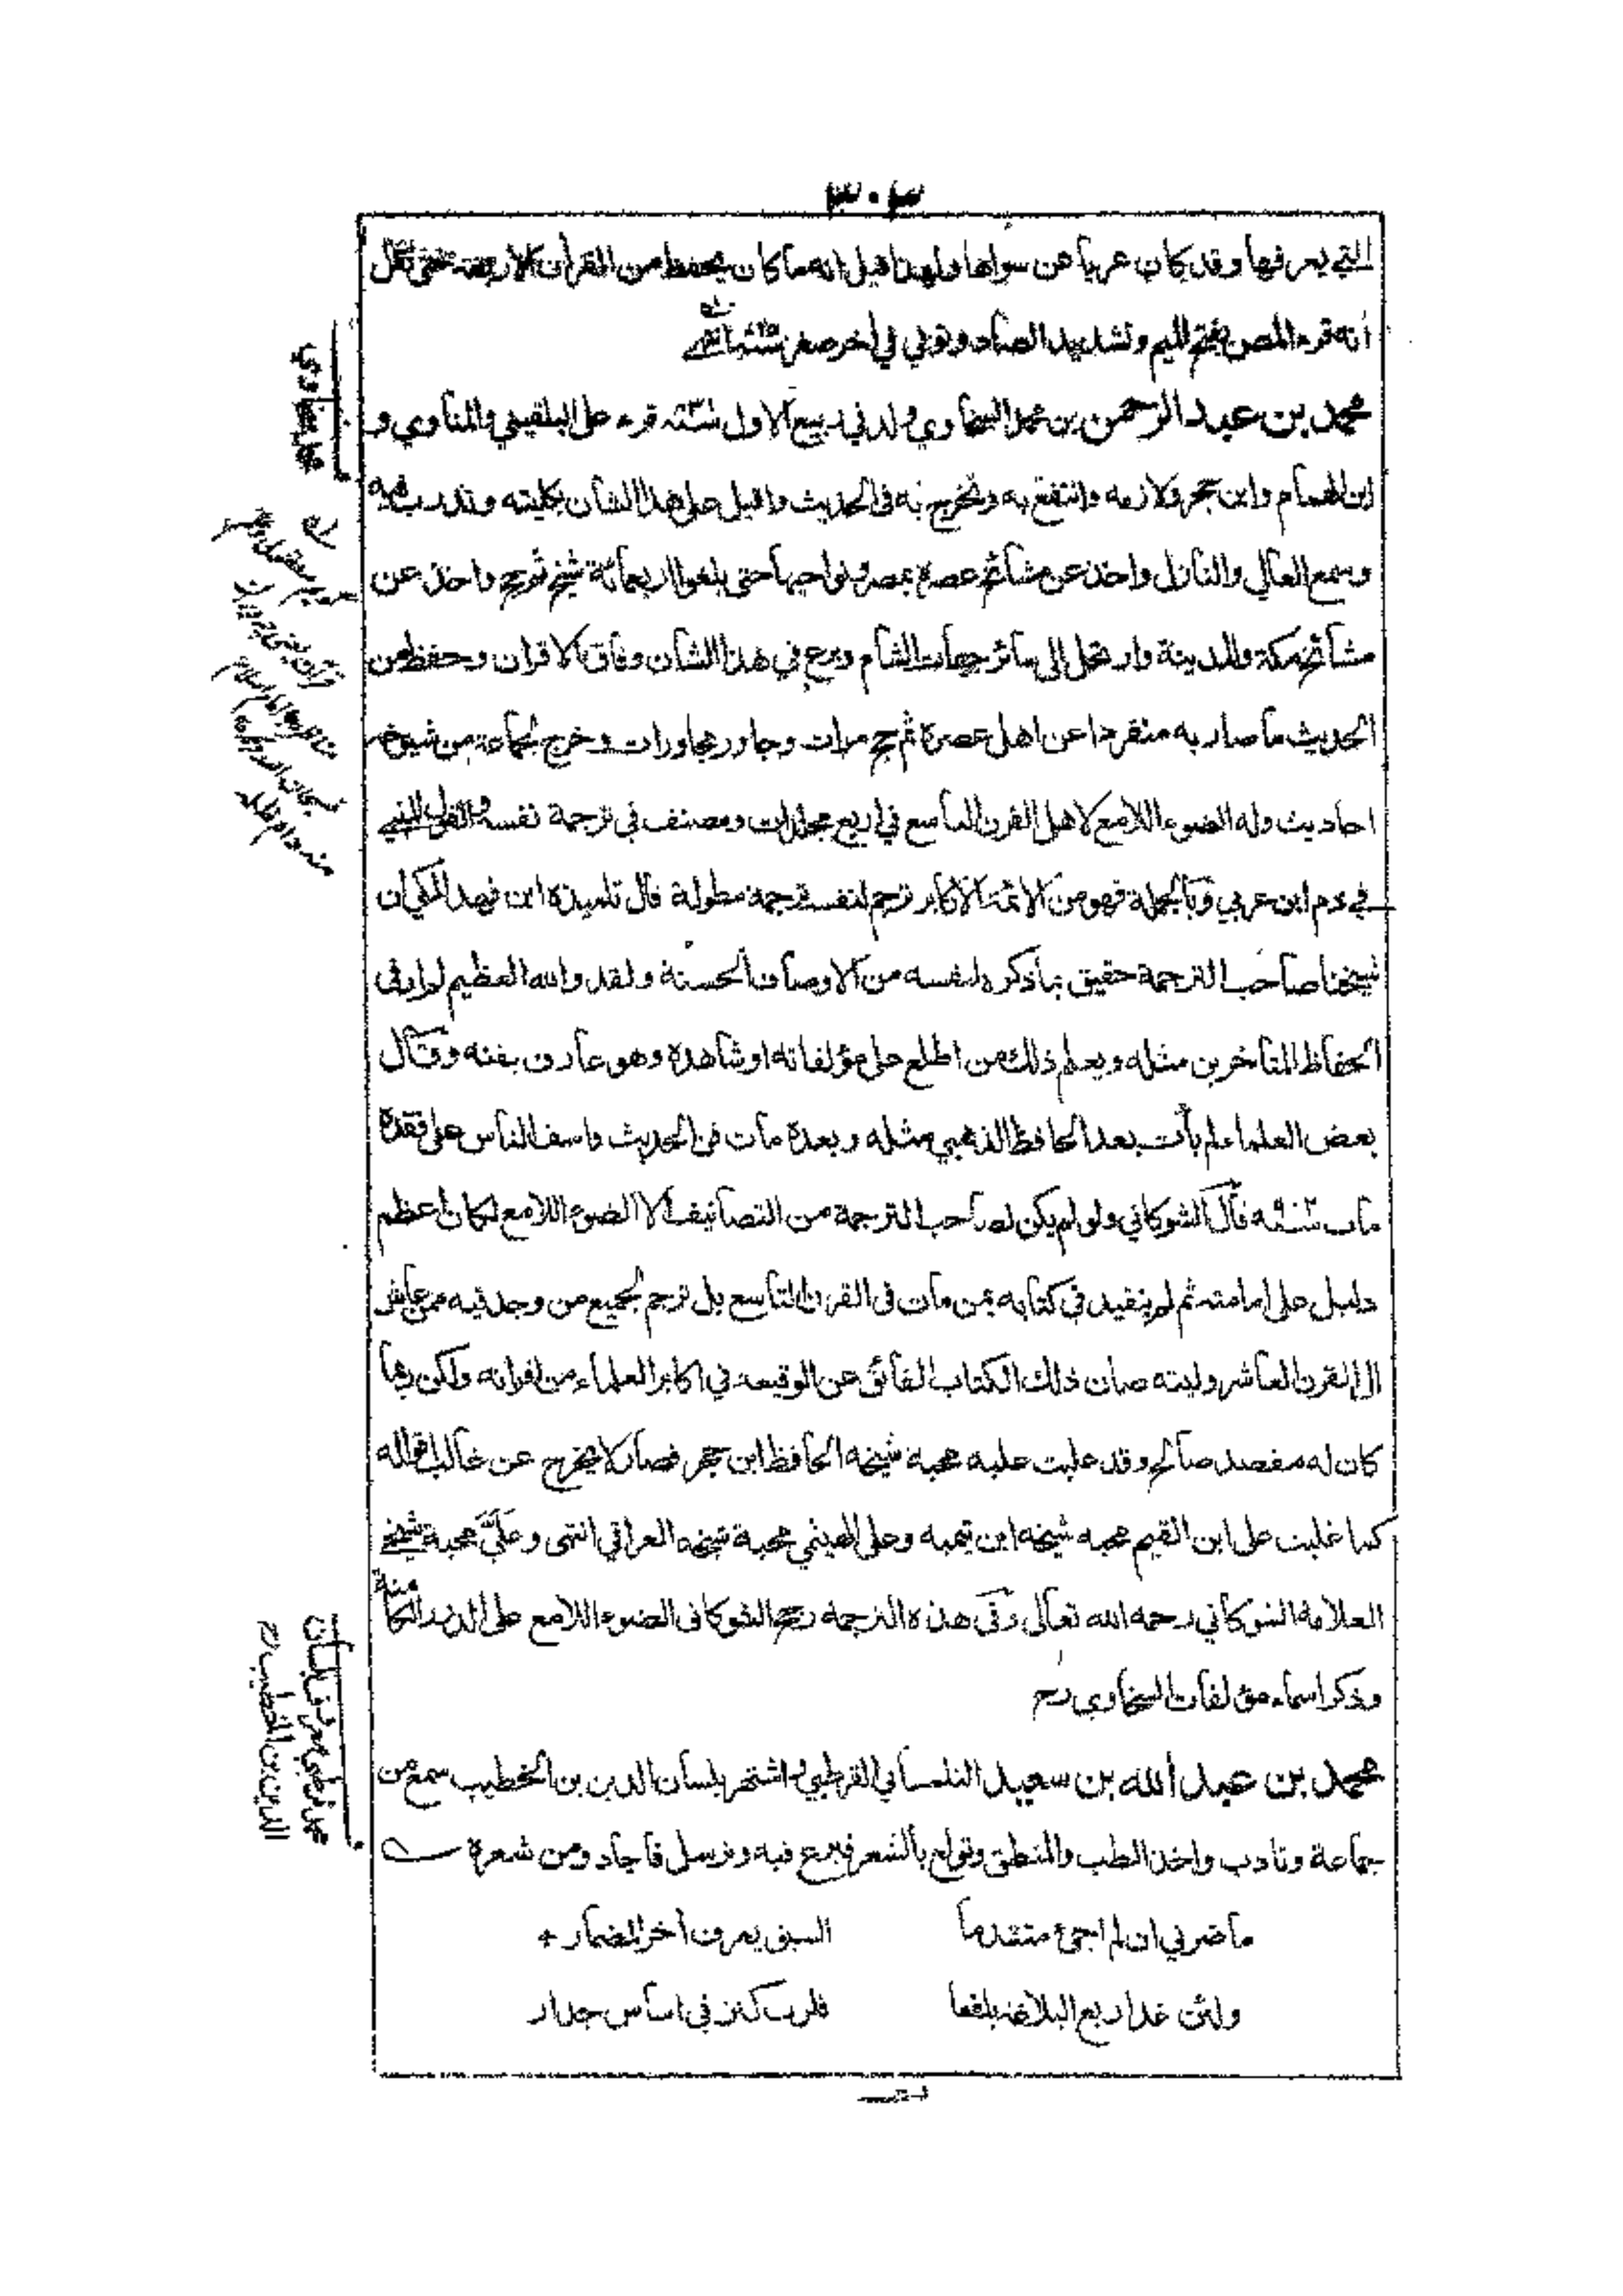 ٣٠٣
التي يعرفها وقد كان عرياً عن سواها ولهذا قيل انه ما كان يحفظ من القرأن الا ربعه حتى نقل
أنه قرء المص بفتح الميم وتشديد الصاد وتوفي في أخر صفر
محمد بن عبد الرحمن بن محمد السخاوي ولد في ربيع الاول سنة قرء على البلقيني والمناوي و
ابن الهمام وابن حجر ولازمه وانتفع به وتخرج به في الحديث واقبل على هذا الشان بكليته وتدرب فيه
وسمع العالي والنازل واخذ عن مشائخ عصره بمصر ونواحيها حتى بلغوا اربعمائة شيخ ثم حج واخذ عن
مشائخ مكة والمدينة وارتحل إلى سائر جهات الشام وبرع في هذا الشان وفاق الاقران وحفظ من
الحديث ما صار به منفردا عن اهل عصره ثم حج مرات وجاور مجاورات وخرج لجماعة من شيوخه
احاديث وله الضوء اللامع لاهل القرن التاسع في اربع مجلدات ومصنف في ترجمة نفسه والقول المنبي
في ذم ابن عربي وبالجملة فهو من الائمة الاكابر ترجم لنفسه ترجمة مطولة قال تلميذه ابن فهد المكي ان
شيخنا صاحب الترجمة حقيق بما ذكره لنفسه من الاوصاف الحسنة ولقد والله العظيم لم ار في
الحفاظ المتأخرين مثله ويعلم ذلك من اطلع على مؤلفاته او شاهده وهو عارف بفنه وقال
بعض العلماء لم يأت بعد الحافظ الذهبي مثله وبعده مات فن الحديث واسف الناس على فقده
مات سنة قال الشوكاني ولو لم يكن لصاحب الترجمة من التصانيف الا الضوء اللامع لكان أعظم
دليل على امامته ثم لم يتقيد في كتابه بمن مات في القرن التاسع بل ترجم لجميع من وجد فيه ممن عاش
الى القرن العاشر وليته صان ذلك الكتاب الفائق عن الوقيعه في اكابر العلماء من اقرانه ولكن ربما
كان له مقصد صالح وقد غلبت عليه محبة شيخه الحافظ ابن حجر فصار لا يخرج عن غالب اقواله
كما غلبت على ابن القيم محبه شيخه ابن تيميه وعلى الهيثمي محبة شيخه العراقي انتهى وعليّ محبة شيخي
العلامة الشوكاني رحمه الله تعالى وفي هذه الترجمه رجح الشوكاني الضوء اللامع على الدرر الكامنة
وذكر اسماء مؤلفات السخاوي رح
محمد بن عبد الله بن سعيد التلمساني القرطبي واشتهر بلسان الدين بن الخطيب سمع من
جماعة وتادب واخذ الطب والمنطق وتولع بالشعر فبرع فيه وترسل فاجاد ومن شعره
ما ضرني ان لم اجئ متقدما السبق يعرف أخر المضمار +
ولئن غدا ربع البلاغة بلقعا فلرب كنز في اساس جدار
محمد سخاوي
محمد قرطبي معروف بلسان
الدين بن الخطيب رح